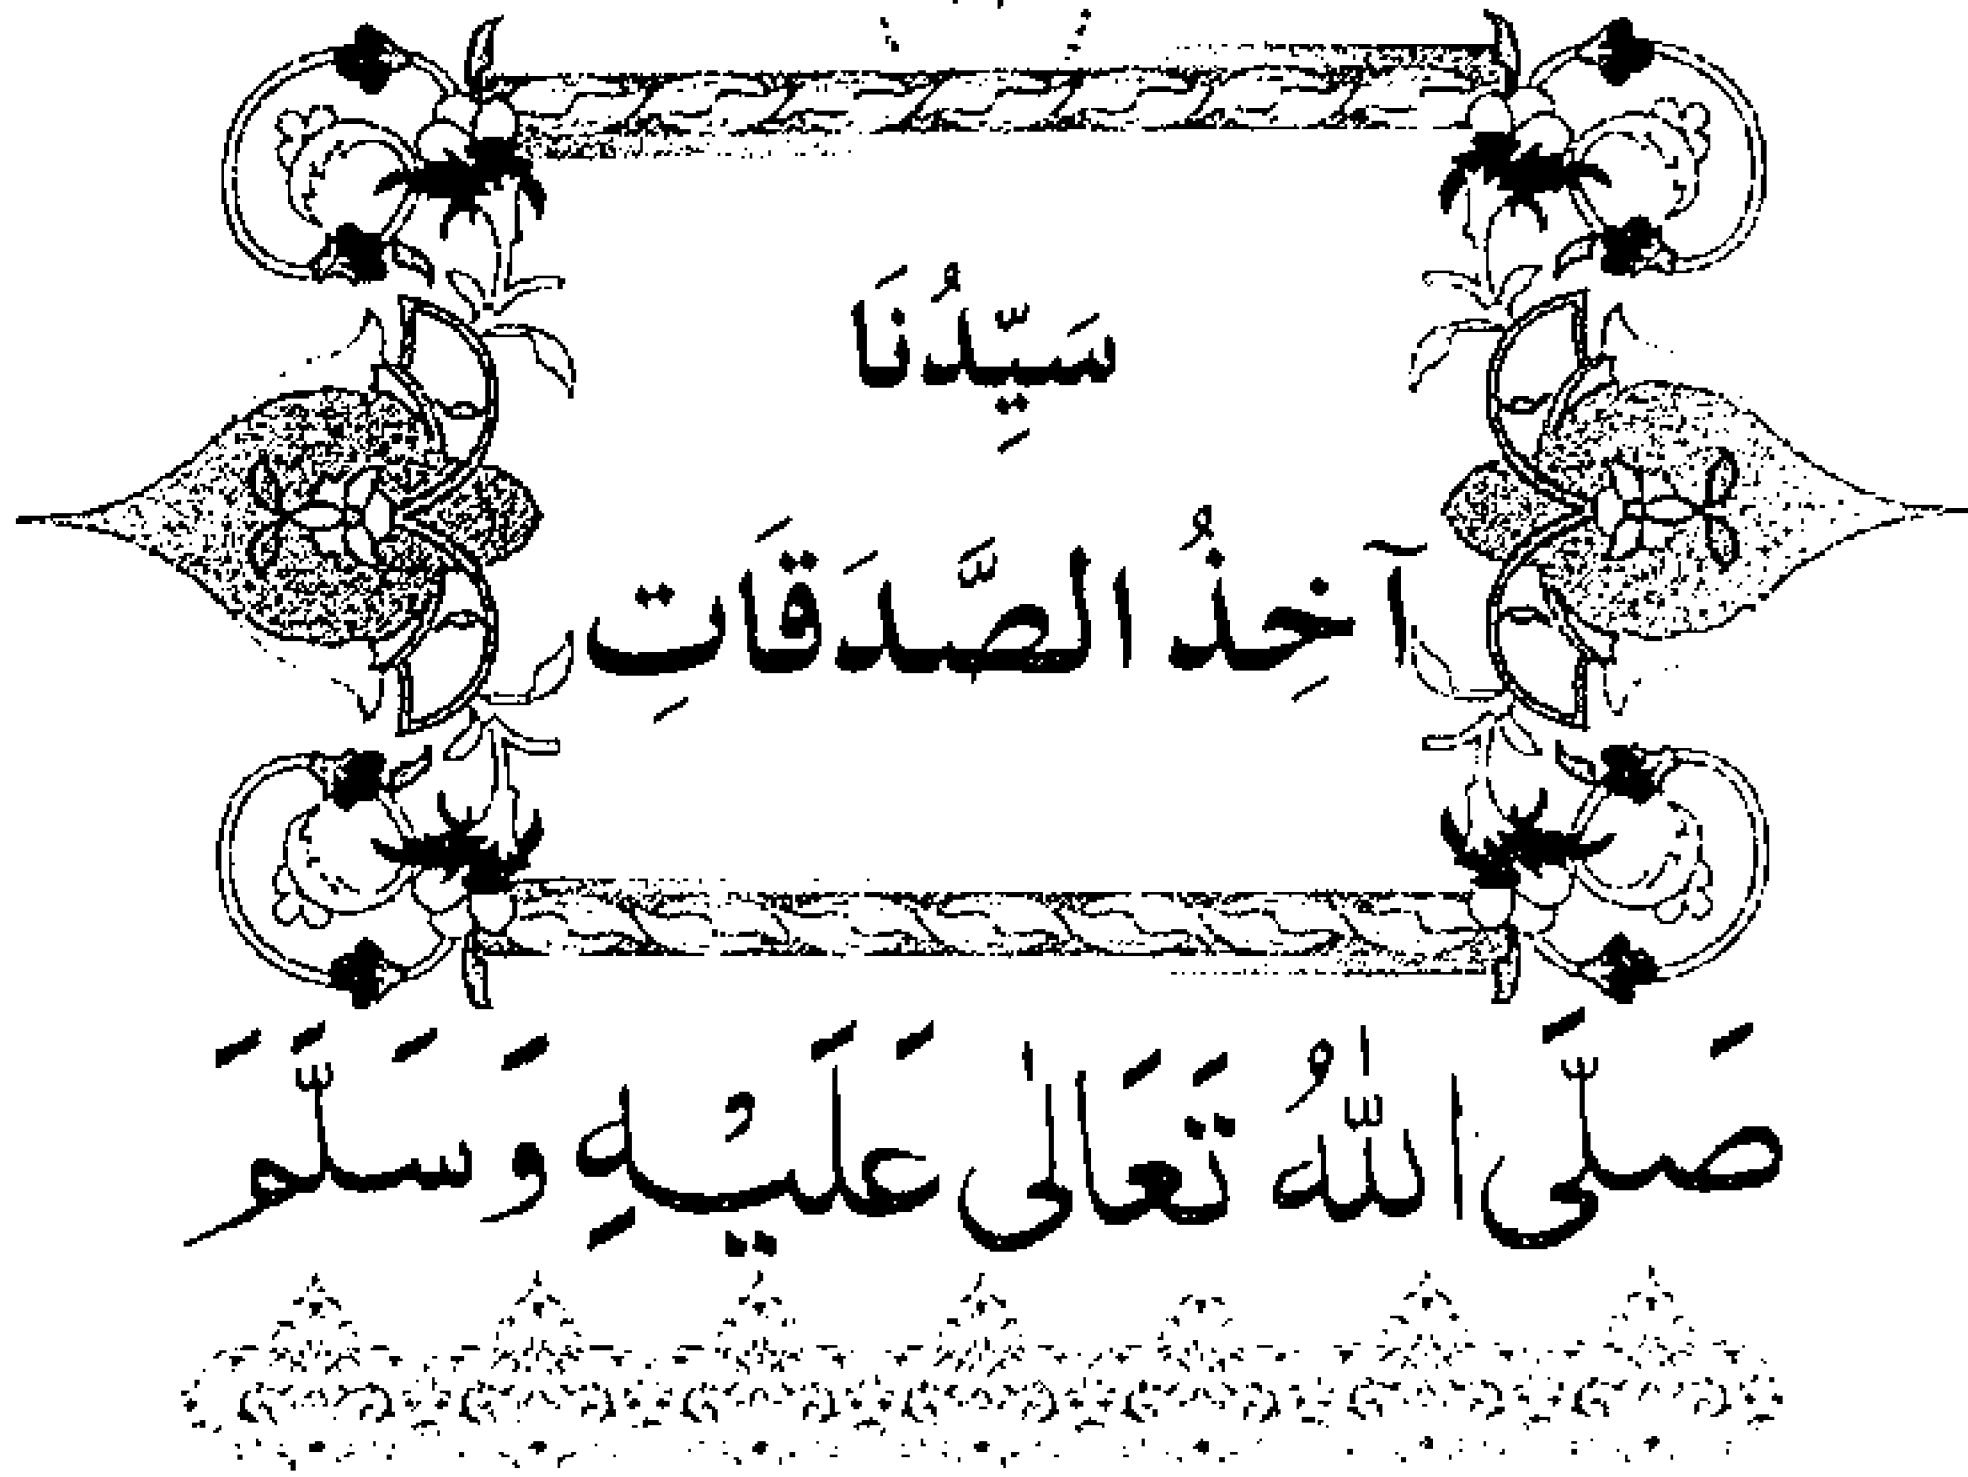 سَيِّدُنَا
آخِذُ الصَّدَقَاتِ
صَلَّى اللّٰهُ تَعَالٰى عَلَيْهِ وَسَلَّمَ